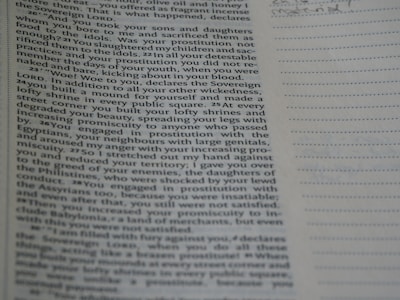 olive oil and honey I
— you offered as fragrant incense
them. That is what happened, declares
the Sovereign LORD.
20 "'And you took your sons and daughters
whom you bore to me and sacrificed them as
food to the idols. Was your prostitution not
enough? 21 You slaughtered my children and sac-
rificed them to the idols. 22 In all your detestable
practices and your prostitution you did not re-
member the days of your youth, when you were
naked and bare, kicking about in your blood.
23 "'Woe! Woe to you, declares the Sovereign
LORD. In addition to all your other wickedness,
24 you built a mound for yourself and made a
lofty shrine in every public square. 25 At every
street corner you built your lofty shrines and
degraded your beauty, spreading your legs with
increasing promiscuity to anyone who passed
by. 26 You engaged in prostitution with the
Egyptians, your neighbours with large genitals,
and aroused my anger with your increasing pro-
miscuity. 27 So I stretched out my hand against
you and reduced your territory; I gave you over
to the greed of your enemies, the daughters of
the Philistines, who were shocked by your lewd
conduct. 28 You engaged in prostitution with
the Assyrians too, because you were insatiable;
and even after that, you still were not satisfied.
29 Then you increased your promiscuity to in-
clude Babylonia, a land of merchants, but even
with this you were not satisfied.
30 "'I am filled with fury against you, declares
the Sovereign LORD, when you do all these
things, acting like a brazen prostitute! 31 When
you built your mounds at every street corner and
made your lofty shrines in every public square,
you were unlike a prostitute, because you
scorned payment.